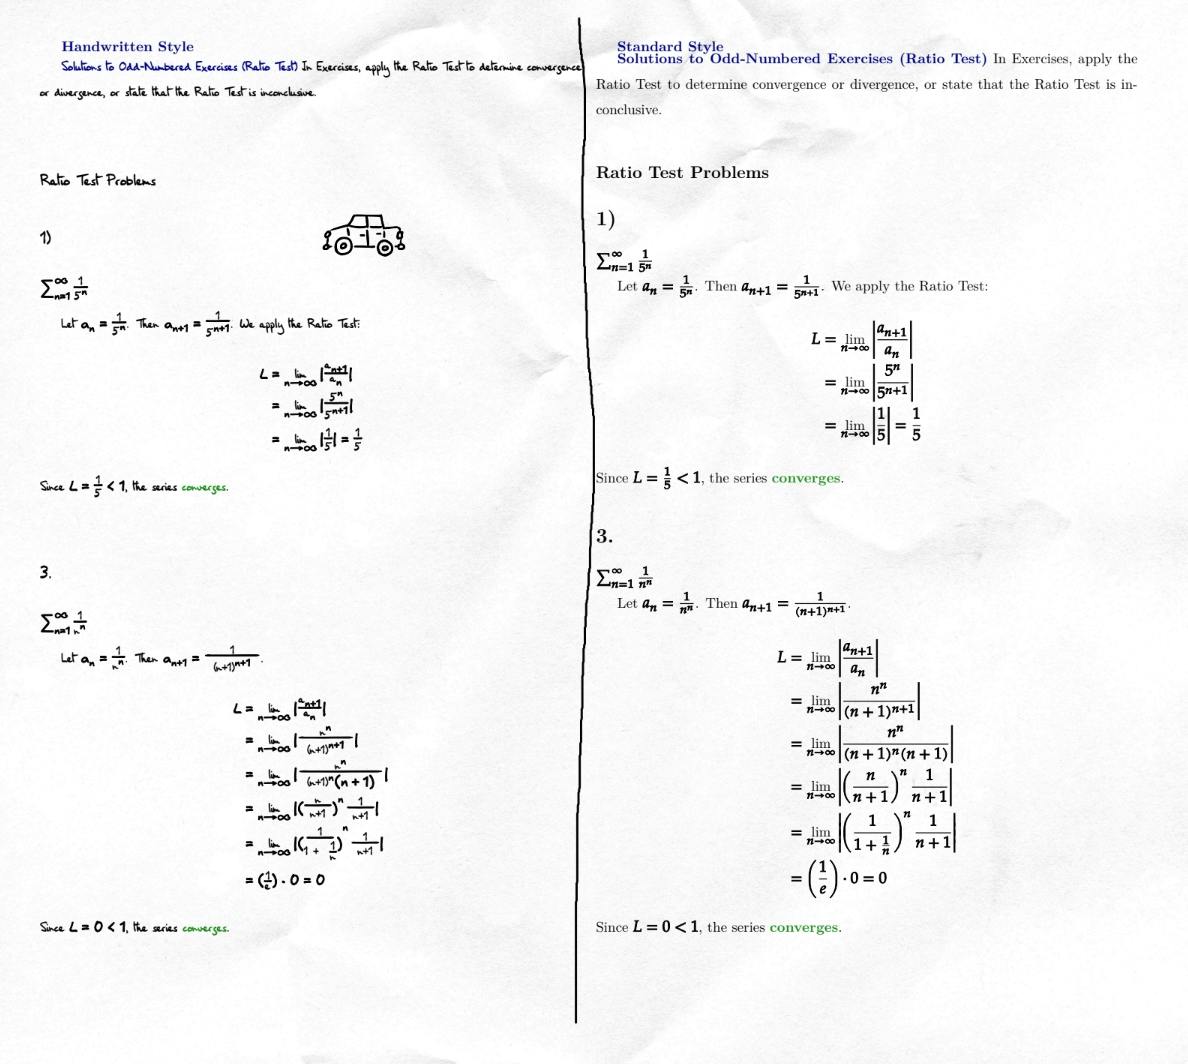 Handwritten Style
Solutions to Odd-Numbered Exercises (Ratio Test) In Exercises, apply the Ratio Test to determine convergence
or divergence, or state that the Ratio Test is inconclusive.
Ratio Test Problems
1)
∑_{n=1}^{∞} \frac{1}{5^n}
Let a_n = \frac{1}{5^n}. Then a_{n+1} = \frac{1}{5^{n+1}}. We apply the Ratio Test:
L = \lim_{n→∞} |\frac{a_{n+1}}{a_n}|
= \lim_{n→∞} |\frac{5^n}{5^{n+1}}|
= \lim_{n→∞} |\frac{1}{5}| = \frac{1}{5}
Since L = \frac{1}{5} < 1, the series converges.
3.
∑_{n=1}^{∞} \frac{1}{n^n}
Let a_n = \frac{1}{n^n}. Then a_{n+1} = \frac{1}{(n+1)^{n+1}}.
L = \lim_{n→∞} |\frac{a_{n+1}}{a_n}|
= \lim_{n→∞} |\frac{n^n}{(n+1)^{n+1}}|
= \lim_{n→∞} |\frac{n^n}{(n+1)^n(n+1)}|
= \lim_{n→∞} |(\frac{n}{n+1})^n \frac{1}{n+1}|
= \lim_{n→∞} |(\frac{1}{1+\frac{1}{n}})^n \frac{1}{n+1}|
= (\frac{1}{e}) · 0 = 0
Since L = 0 < 1, the series converges.
Standard Style
Solutions to Odd-Numbered Exercises (Ratio Test) In Exercises, apply the
Ratio Test to determine convergence or divergence, or state that the Ratio Test is in-
conclusive.
Ratio Test Problems
1)
∑_{n=1}^{∞} \frac{1}{5^n}
Let a_n = \frac{1}{5^n}. Then a_{n+1} = \frac{1}{5^{n+1}}. We apply the Ratio Test:
L = \lim_{n→∞} |\frac{a_{n+1}}{a_n}|
= \lim_{n→∞} |\frac{5^n}{5^{n+1}}|
= \lim_{n→∞} |\frac{1}{5}| = \frac{1}{5}
Since L = \frac{1}{5} < 1, the series converges.
3.
∑_{n=1}^{∞} \frac{1}{n^n}
Let a_n = \frac{1}{n^n}. Then a_{n+1} = \frac{1}{(n+1)^{n+1}}.
L = \lim_{n→∞} |\frac{a_{n+1}}{a_n}|
= \lim_{n→∞} |\frac{n^n}{(n+1)^{n+1}}|
= \lim_{n→∞} |\frac{n^n}{(n+1)^n(n+1)}|
= \lim_{n→∞} |(\frac{n}{n+1})^n \frac{1}{n+1}|
= \lim_{n→∞} |(\frac{1}{1+\frac{1}{n}})^n \frac{1}{n+1}|
= (\frac{1}{e}) · 0 = 0
Since L = 0 < 1, the series converges.